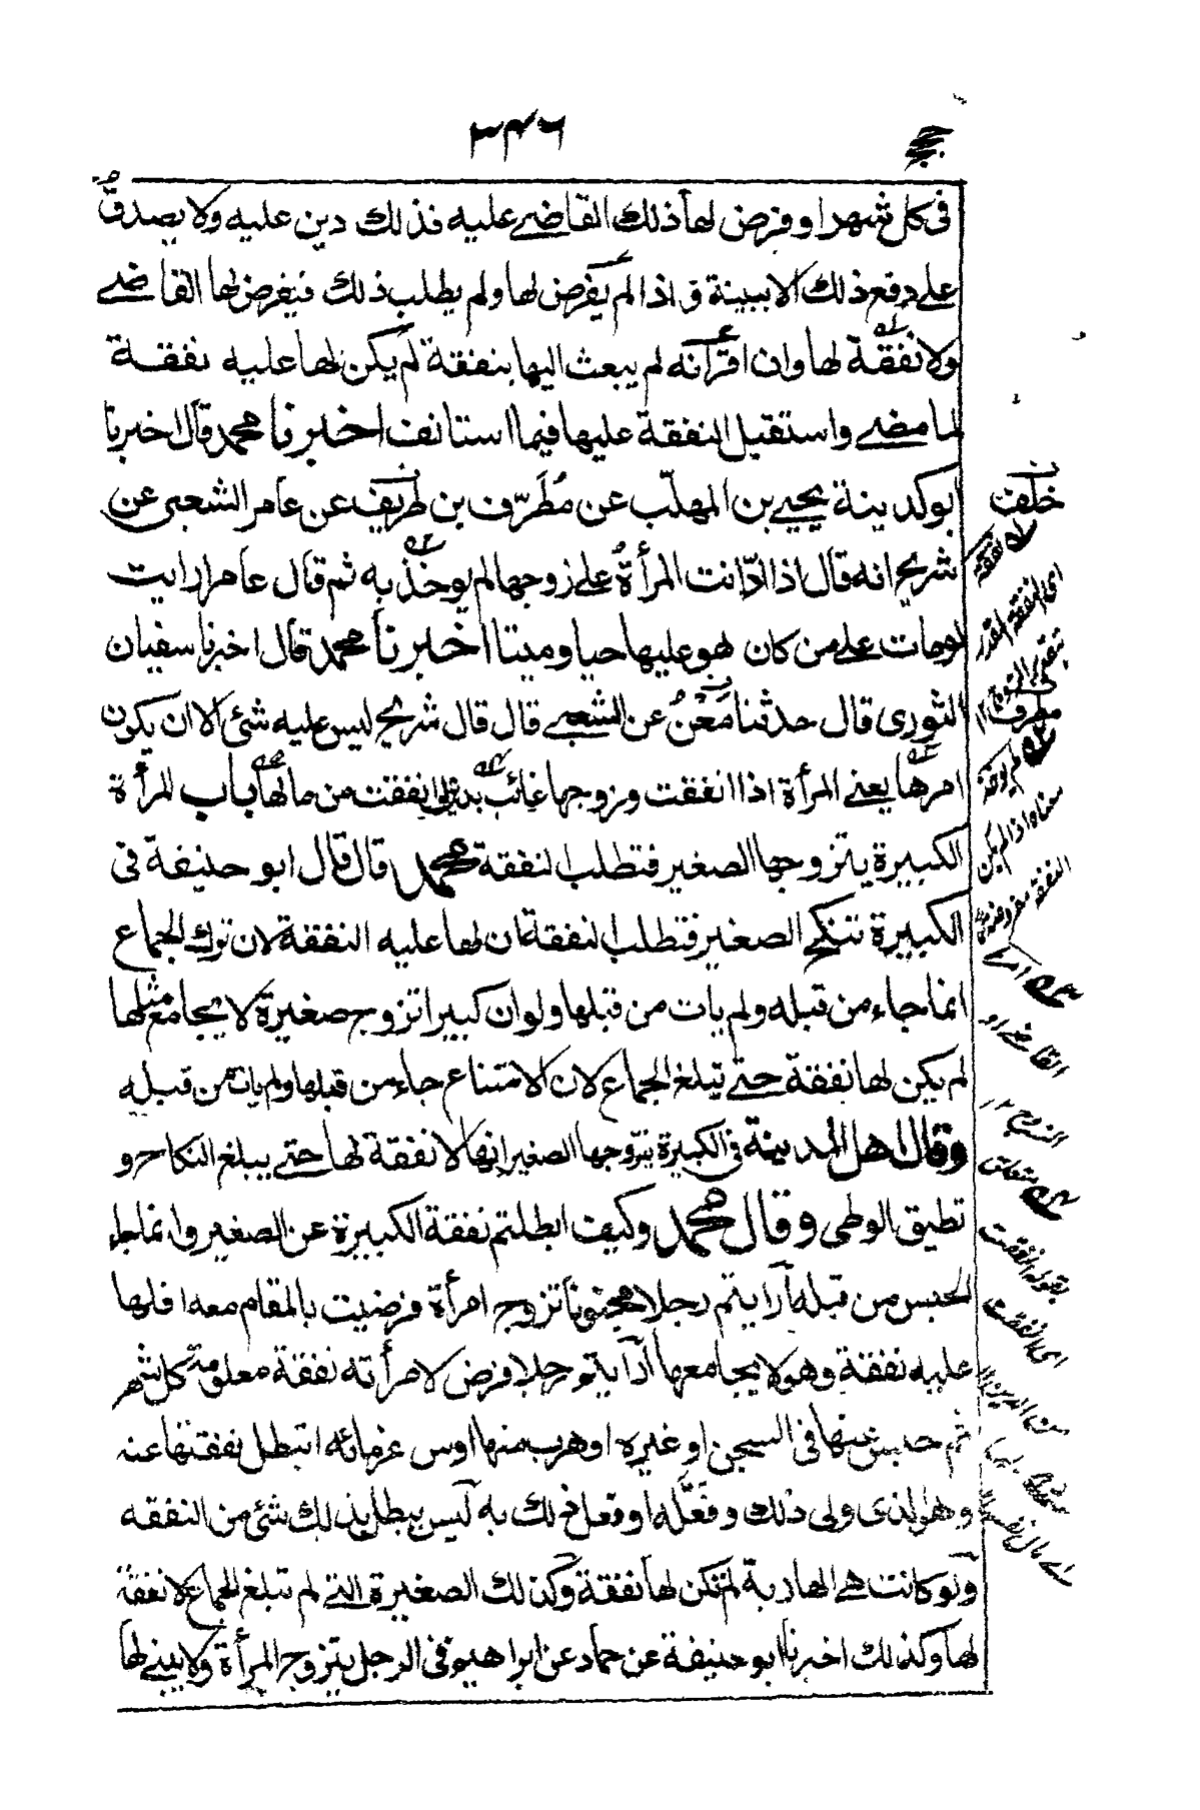 ٣٤٦
فى كل شهر او فرض لها ذلك القاضى عليه فذلك دين عليه ولا يصدق
على دفع ذلك الا ببينة واذا لم يفرض لها ولم يطلب ذلك فيفرض لها القاضى
ولا نفقة لها وان اقر انه لم يبعث اليها بنفقة لم يكن لها عليه نفقة
لما مضى واستقبل النفقة عليها فيما استانف اخبرنا محمد قال اخبرنا
ابو كدينة يحيى بن المهلب عن مُطَرّف بن طريف عن عامر الشعبى عن
شريح انه قال اذا ادّانت المرأة على زوجها لم يوخذ به ثم قال عامر ارايت
لو مات على من كان لهو عليها حيا وميتا اخبرنا محمد قال اخبرنا سفيان
الثورى قال حدثنا مَعْنٌ عن الشعبى قال قال شريح ليس عليه شئ الا ان يكون
امرها يعنى المرأة اذا انفقت وزوجها غائب بدين انفقت من مالها باب المرأة
الكبيرة يتزوجها الصغير فتطلب النفقة محمد قال قال ابو حنيفة فى
الكبيرة تنكح الصغير فتطلب النفقة ان لها عليه النفقة لان ترك الجماع
انما جاء من قبله ولم يات من قبلها ولو ان كبيرا تزوج صغيرة لا يجامع مثلها
لم يكن لها نفقة حتى تبلغ الجماع لان الامتناع جاء من قبلها ولم يات من قبله
وقال اهل المدينة فى الكبيرة يتزوجها الصغير انها لا نفقة لها حتى يبلغ النكاح و
تطيق الوطى وقال محمد وكيف ابطلتم نفقة الكبيرة عن الصغير وانما جاء
الحبس من قبله أرايتم رجلا مجنونا تزوج امرأة فرضيت بالمقام معه افلها
عليه نفقة وهو لا يجامعها أرأيتو رجلا فرض لامرأته نفقة معلومة كل شهر
ثم حبس عنها فى السجن او غيره او هرب منها اوس غرمائه اتبطل نفقتها عنه
وهو الذى ولى ذلك وفَعَلَه او فعل ذلك به ليس يبطل بذلك شئ من النفقه
ولو كانت هى الهاربة لم تكن لها نفقة وكذلك الصغيرة التى لم تبلغ الجماع لا نفقة
لها وكذلك اخبرنا ابو حنيفة عن حماد عن ابراهيم فى الرجل يتزوج المرأة ولا يبنى لها
خلف
له نفقة
اى النفقة
مطرف
معناه اذا لم يكن
النفقة مفروضة
القاضى او
الزوج ١٢
متعلق
بقوله انفقت
اى انفقت
من الدين